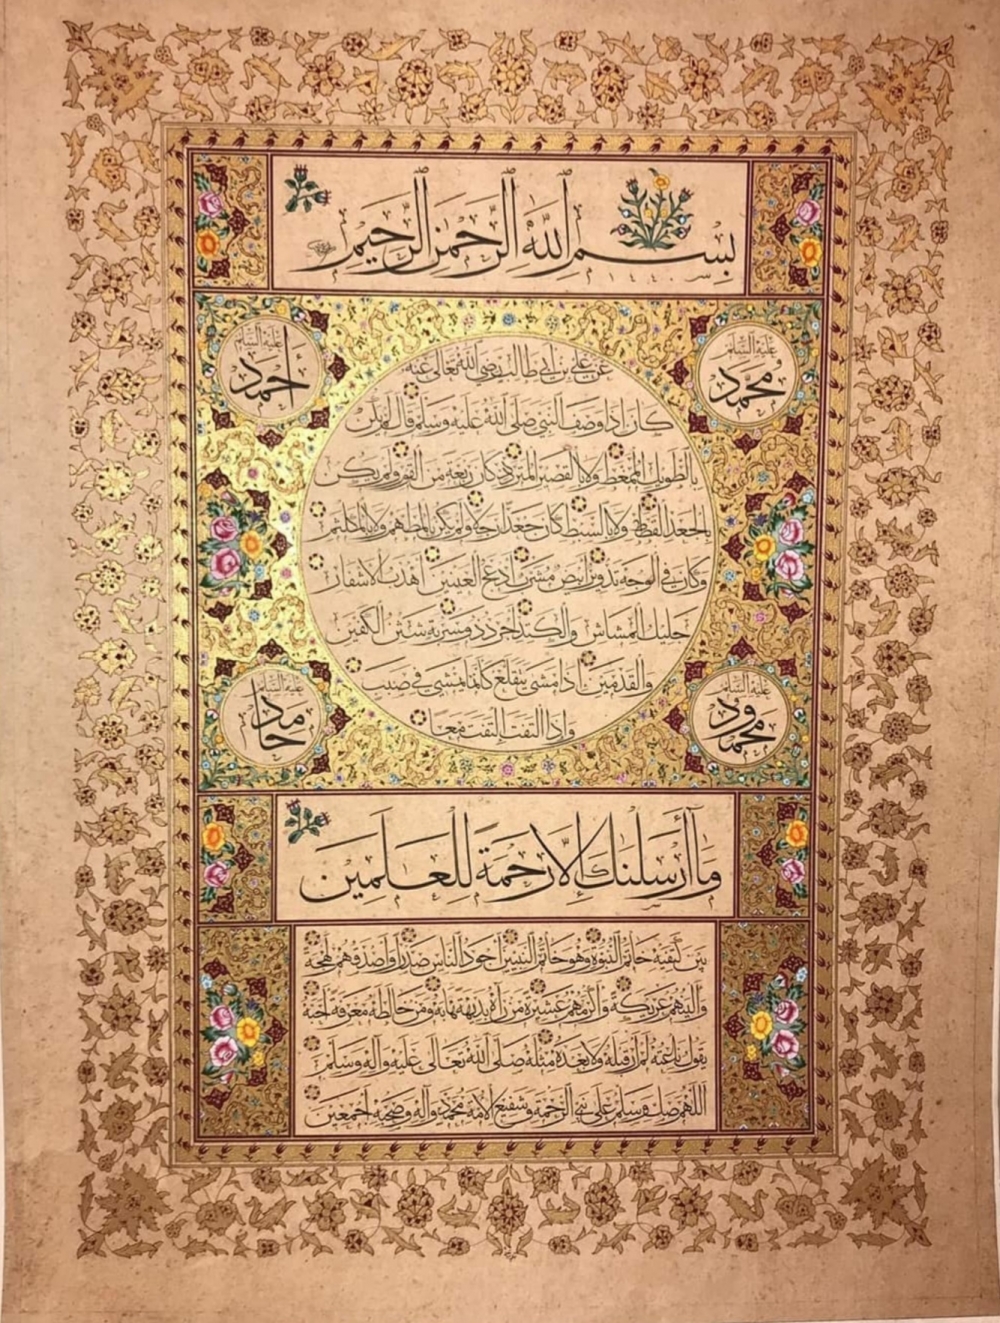 بسم الله الرحمن الرحيم
عليه السلام
محمد
عليه السلام
أحمد
عن علي بن أبي طالب رضي الله تعالى عنه
كان إذا وصف النبي صلى الله عليه وسلم قال لم يكن
بالطويل الممغط ولا بالقصير المتردد كان ربعة من القوم ولم يكن
بالجعد القطط ولا بالسبط كان جعدا رجلا ولم يكن بالمطهم ولا بالمكلثم
وكان في الوجه تدوير أبيض مشرب أدعج العينين أهدب الأشفار
جليل المشاش والكتد أجرد ذو مسربة شثن الكفين
والقدمين إذا مشى يتقلع كأنما يمشي في صبب
وإذا التفت التفت معا
عليه السلام
محمود
عليه السلام
حامد
وما أرسلنك إلا رحمة للعلمين
بين كتفيه خاتم النبوة وهو خاتم النبيين أجود الناس صدرا وأصدقهم لهجة
وألينهم عريكة وأكرمهم عشيرة من رآه بديهة هابه ومن خالطه معرفة أحبه
يقول ناعته لم أر قبله ولا بعده مثله صلى الله تعالى عليه وآله وسلم
اللهم صل وسلم على نبي الرحمة وشفيع الأمة محمد وآله وصحبه أجمعين